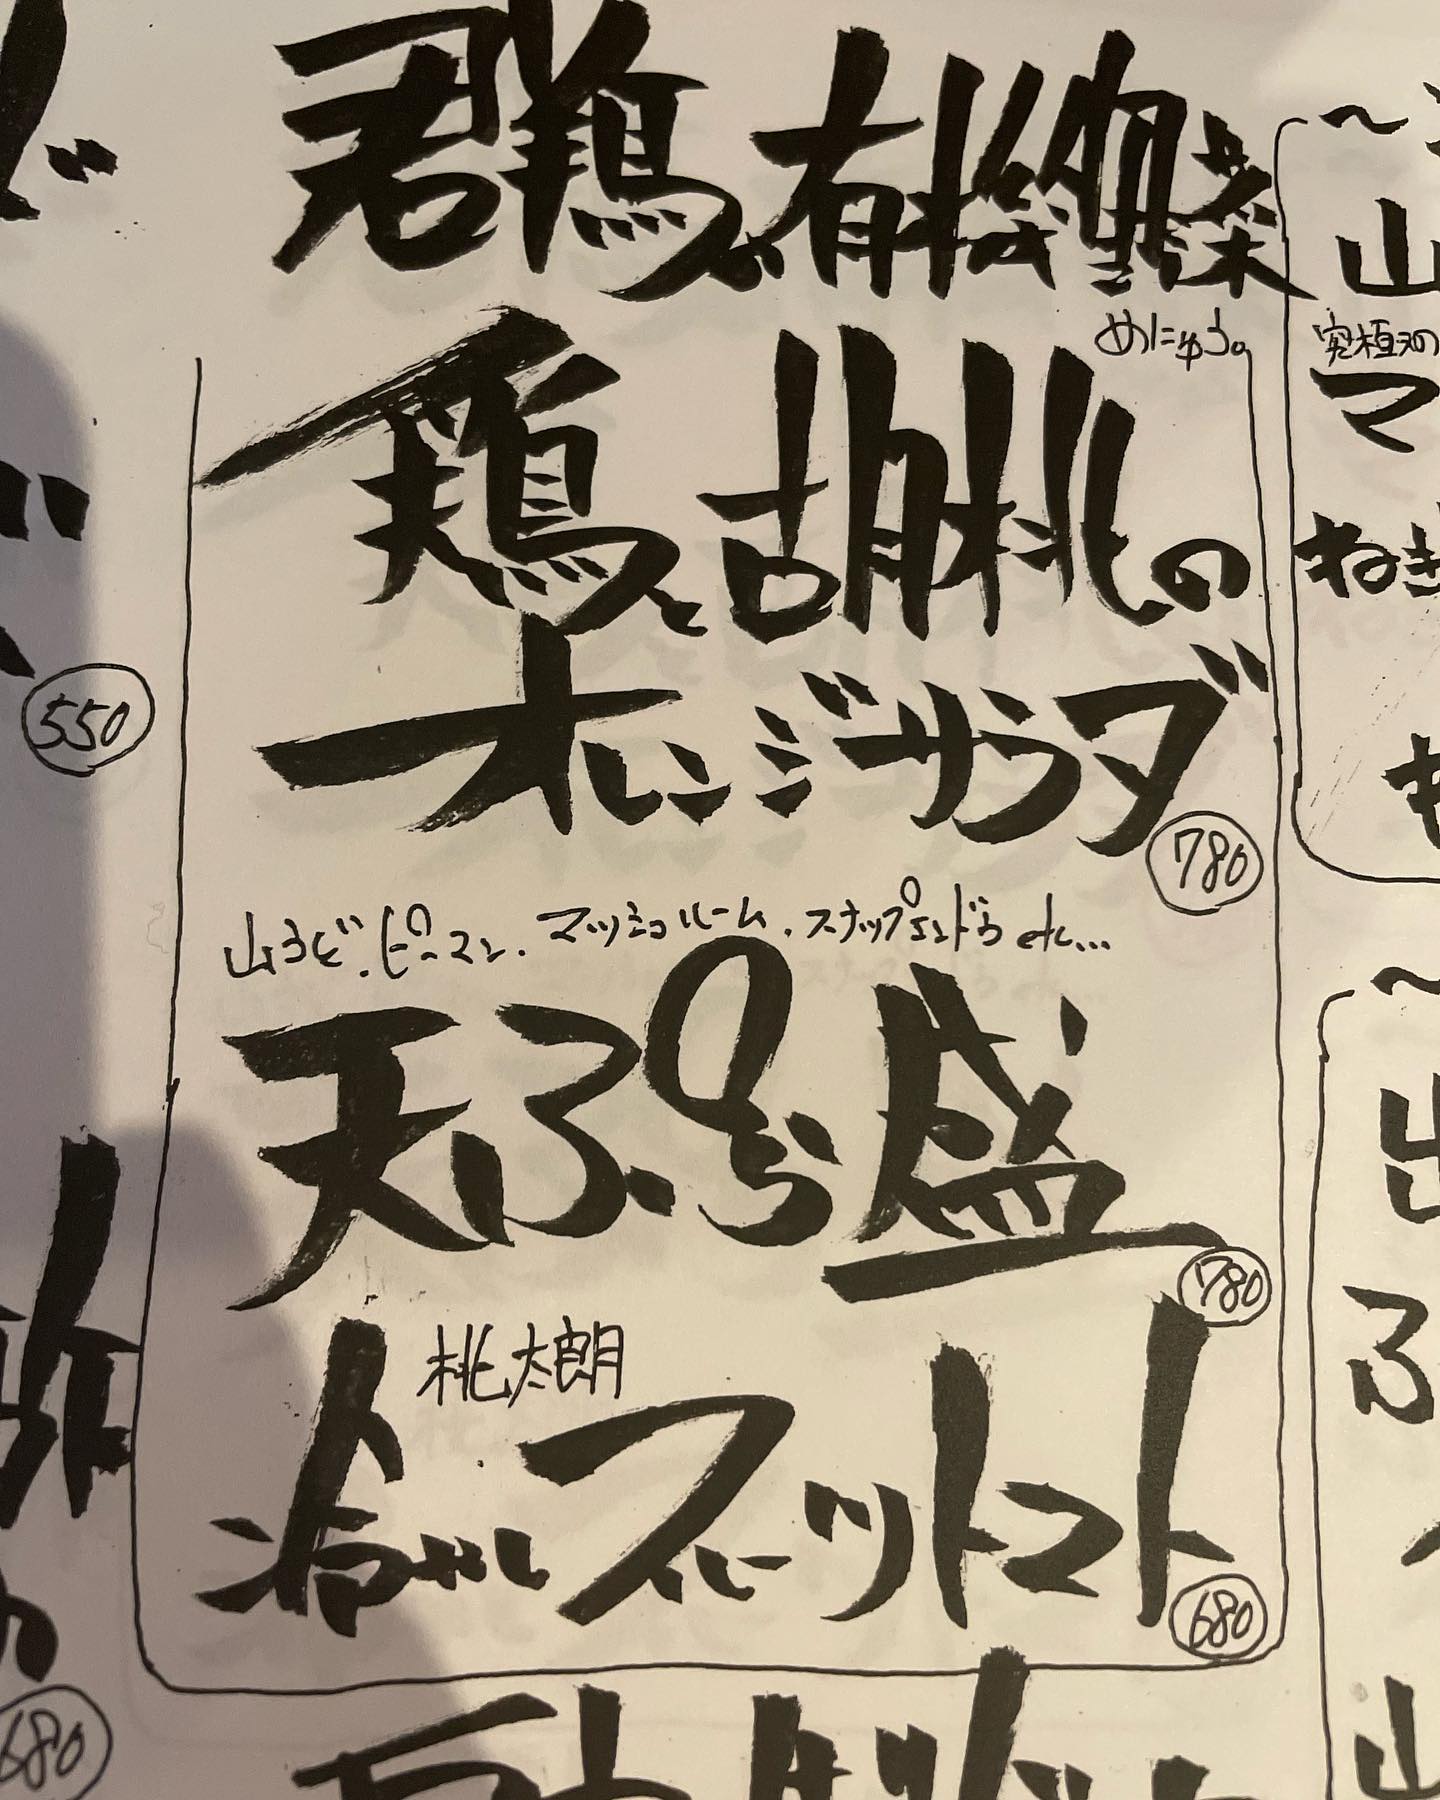 君鶏の有機野菜
めにゅう。
鶏と胡桃の
オレンジサラダ
780
山うど、ピーマン、マッシュルーム、スナップえんどう etc...
天ぷら盛
780
桃太郎
冷やしフルーツトマト
680
550
680
山
究極の
マ
ねぎ
も
出
ふ
山